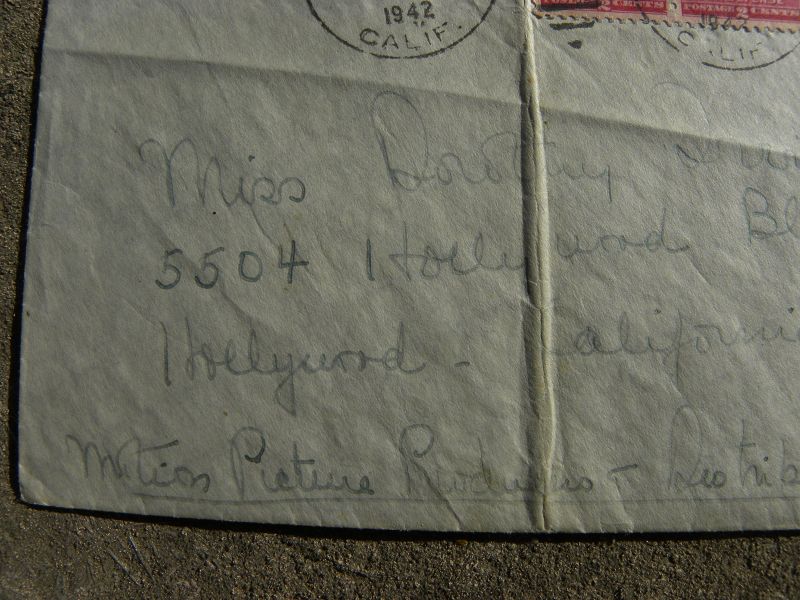 1942
CALIF.
2 CENTS
POSTAGE 2 CENTS
1942
CALIF
Miss Dorothy
5504 Hollywood Bl
Hollywood - California
Motion Picture Producers + Distrib